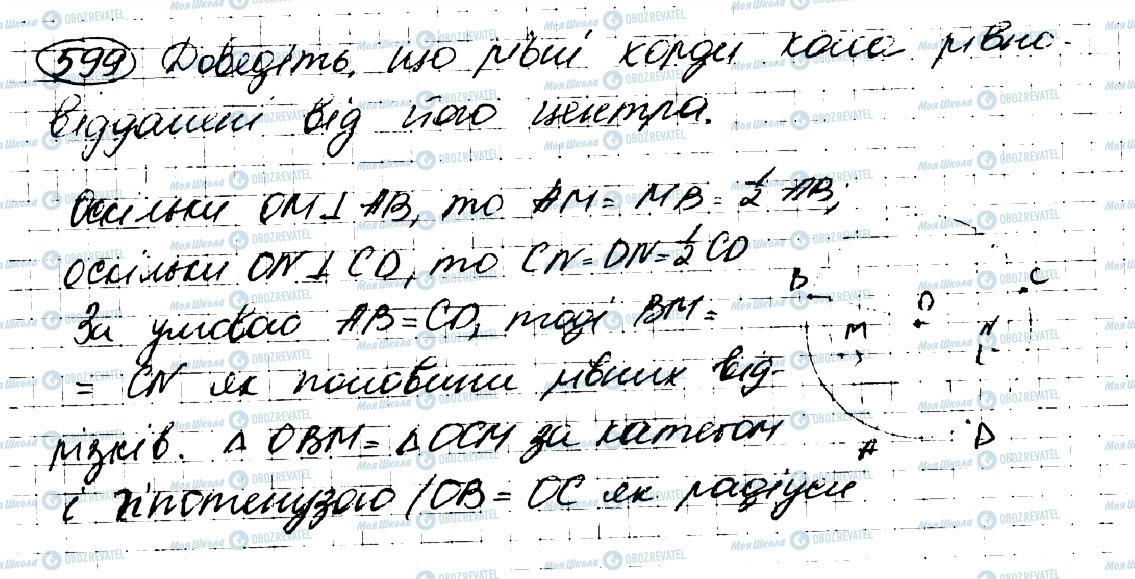 599 Доведіть, що рівні хорди кола рівно-
віддалені від його центра.
Оскільки OM⊥AB, то AM=MB=½AB;
оскільки ON⊥CD, то CN=DN=½CD
За умовою AB=CD, тоді BM=
= CN як половини рівних від-
різків. △OBM=△OCM за катетом
і гіпотенузою (OB=OC як радіуси
B
C
O
M
N
A
D
Моя Школа OBOZREVATEL